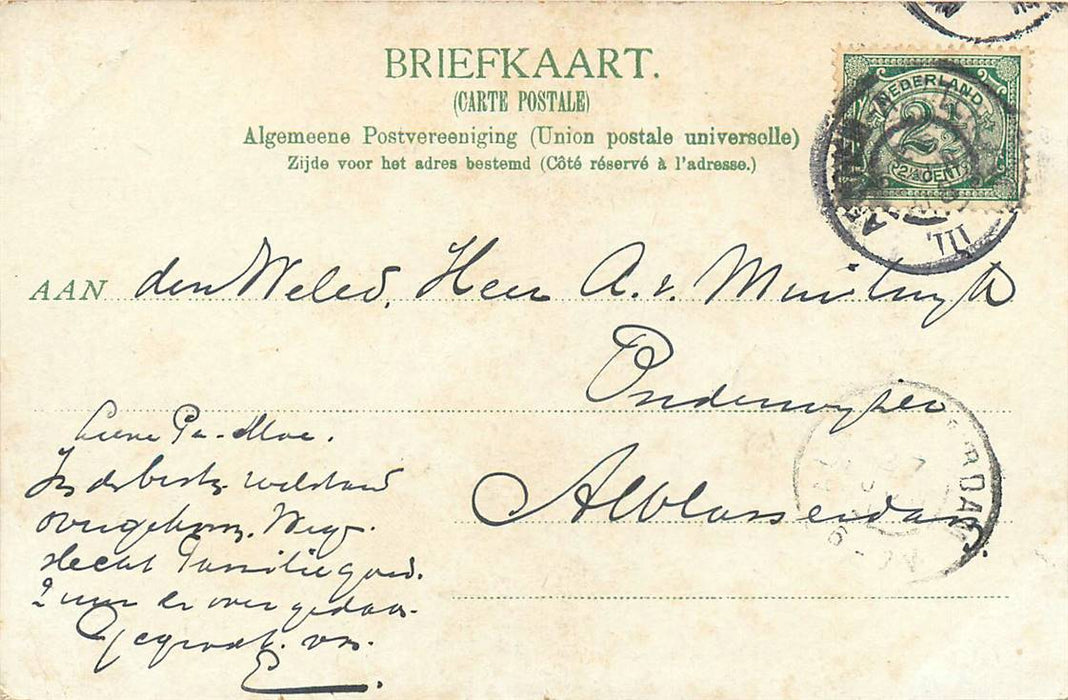 BRIEFKAART.
(CARTE POSTALE)
Algemeene Postvereeniging (Union postale universelle)
Zijde voor het adres bestemd (Côté réservé à l'adresse.)
NEDERLAND
2½
2½ CENT
III
AAN den Weled. Heer A. v.
Onderwijzer
Alblasserdam.
RDAM
Lieve Pa - Moe.
In de beste welstand
overgekom. Weg
slecht Familie goed.
2 uur er over gedaan.
Gegroet. van
E